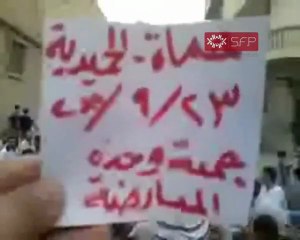 SFP
حماة - الحميدية
٢٣/٩/
جمعة وحدة
المعارضة